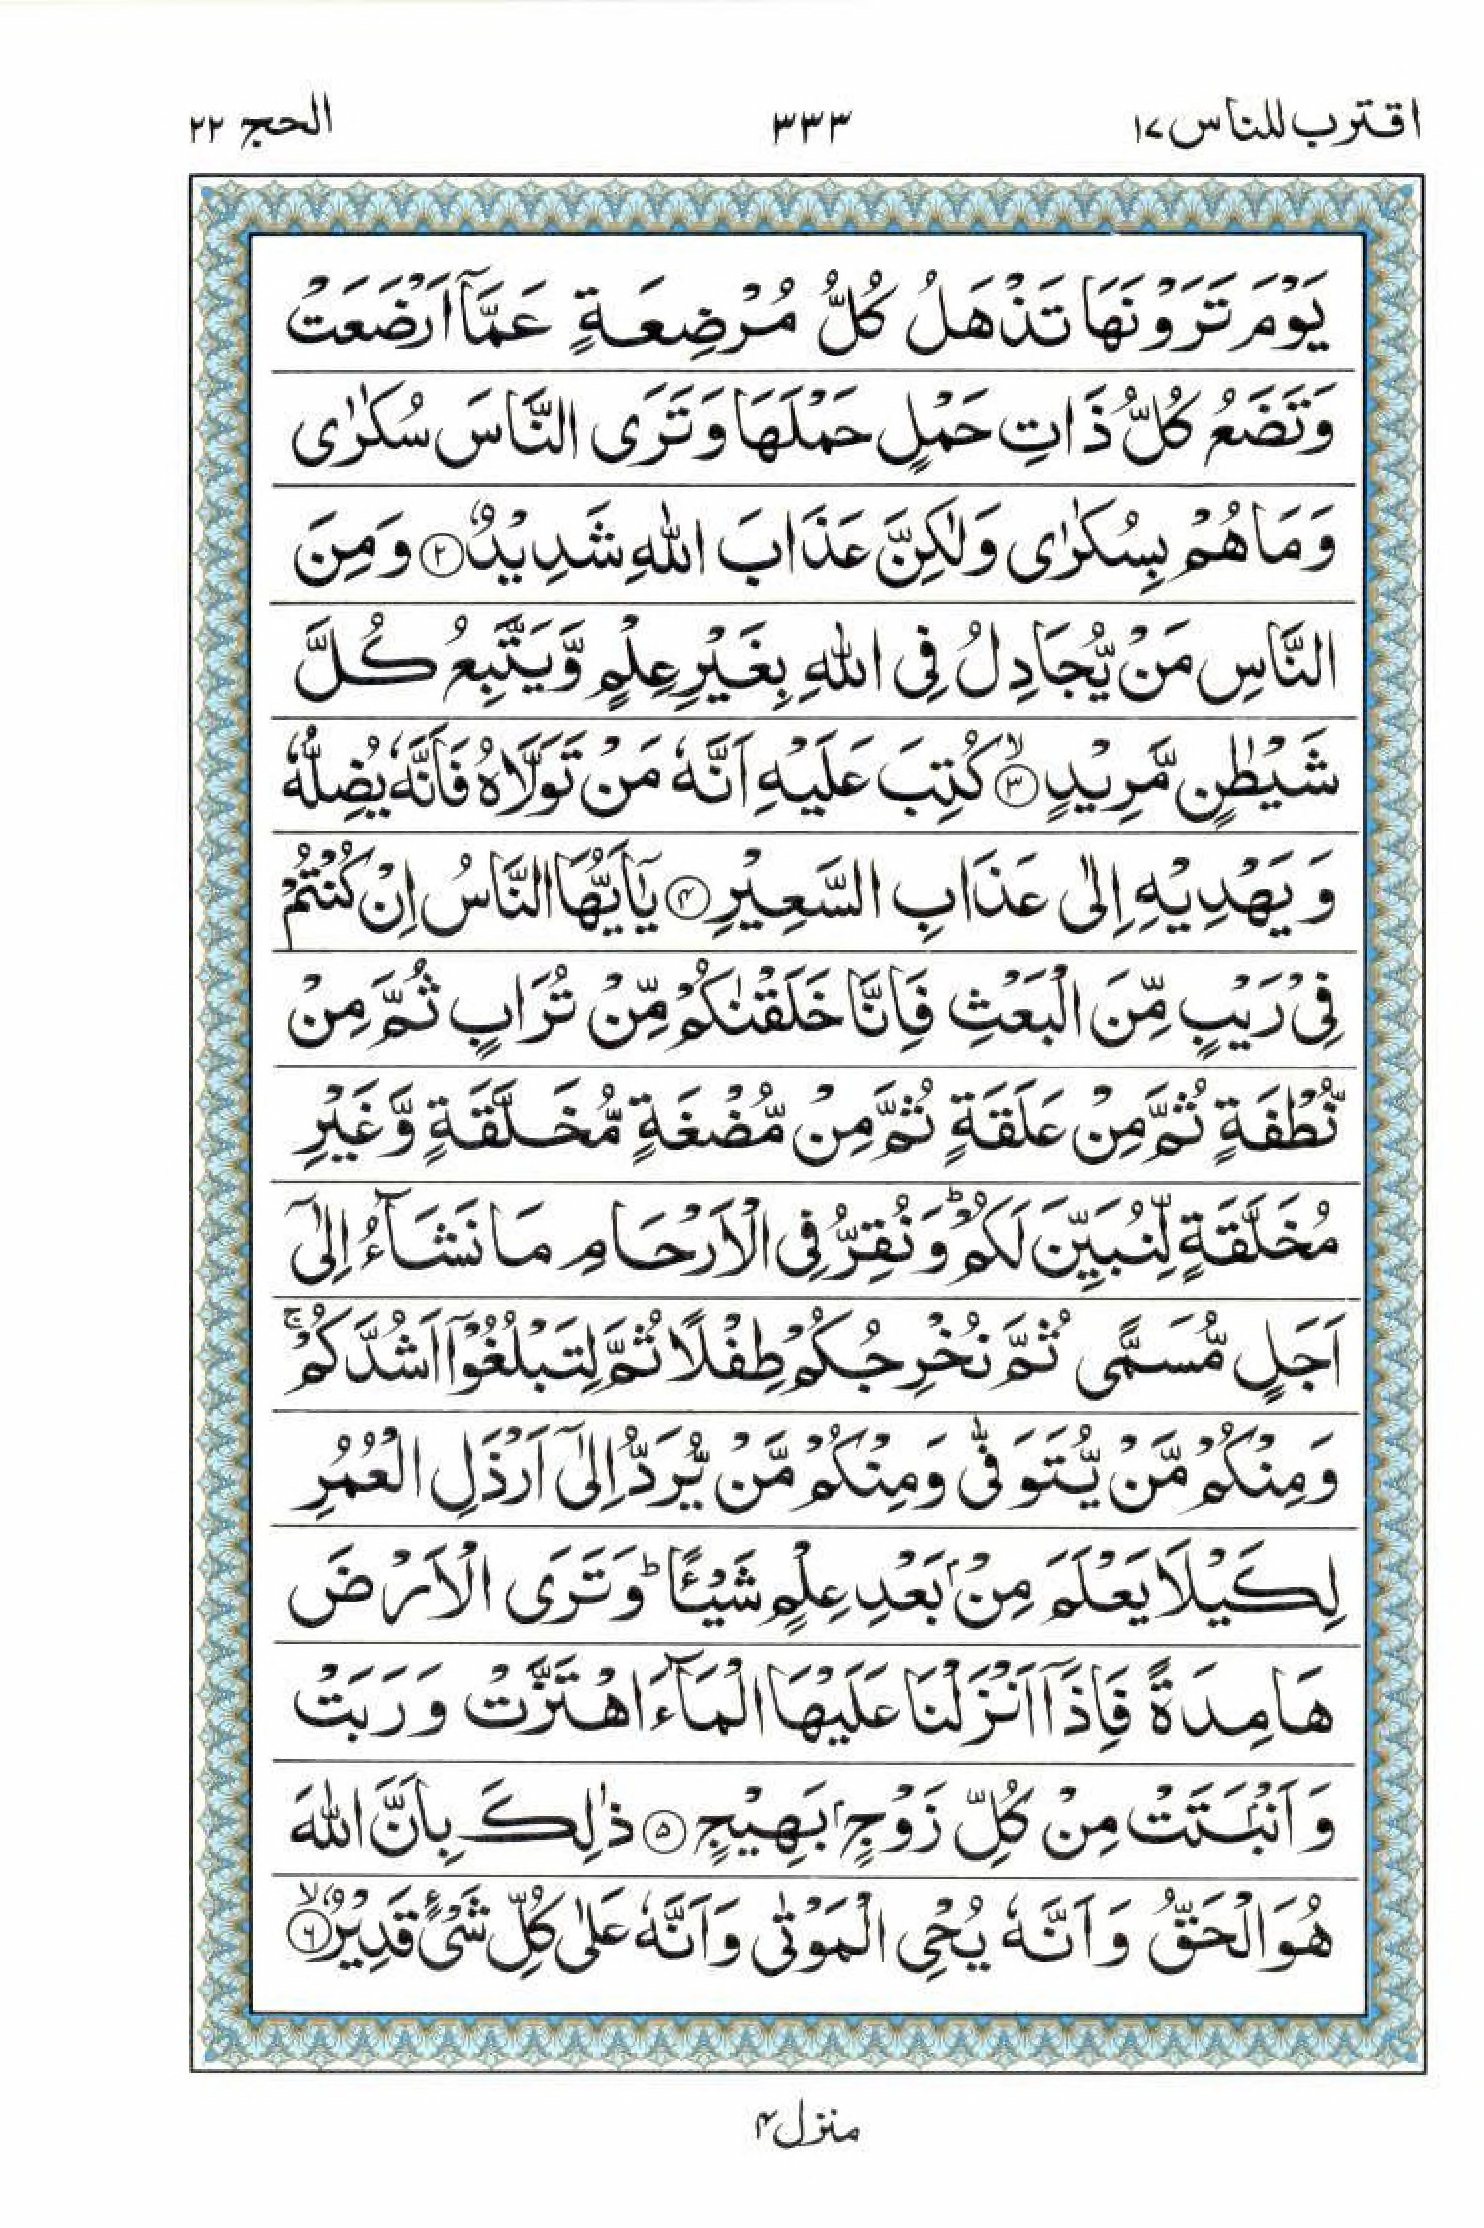 اقترب للناس ۱۷
۳۳۳
الحج ۲۲
يَوْمَ تَرَوْنَهَا تَذْهَلُ كُلُّ مُرْضِعَةٍ عَمَّاۤ اَرْضَعَتْ
وَتَضَعُ كُلُّ ذَاتِ حَمْلٍ حَمْلَهَا وَتَرَى النَّاسَ سُكٰرٰى
وَمَا هُمْ بِسُكٰرٰى وَلٰكِنَّ عَذَابَ اللّٰهِ شَدِيْدٌ ۝۲ وَمِنَ
النَّاسِ مَنْ يُّجَادِلُ فِى اللّٰهِ بِغَيْرِ عِلْمٍ وَّيَتَّبِعُ كُلَّ
شَيْطٰنٍ مَّرِيْدٍ ۙ۝۳ كُتِبَ عَلَيْهِ اَنَّهٗ مَنْ تَوَلَّاهُ فَاَنَّهٗ يُضِلُّهٗ
وَيَهْدِيْهِ اِلٰى عَذَابِ السَّعِيْرِ ۝۴ يٰۤاَيُّهَا النَّاسُ اِنْ كُنْتُمْ
فِىْ رَيْبٍ مِّنَ الْبَعْثِ فَاِنَّا خَلَقْنٰكُمْ مِّنْ تُرَابٍ ثُمَّ مِنْ
نُّطْفَةٍ ثُمَّ مِنْ عَلَقَةٍ ثُمَّ مِنْ مُّضْغَةٍ مُّخَلَّقَةٍ وَّغَيْرِ
مُخَلَّقَةٍ لِّنُبَيِّنَ لَكُمْ ؕ وَنُقِرُّ فِى الْاَرْحَامِ مَا نَشَآءُ اِلٰۤى
اَجَلٍ مُّسَمًّى ثُمَّ نُخْرِجُكُمْ طِفْلًا ثُمَّ لِتَبْلُغُوْۤا اَشُدَّكُمْ ۚ
وَمِنْكُمْ مَّنْ يُّتَوَفّٰى وَمِنْكُمْ مَّنْ يُّرَدُّ اِلٰۤى اَرْذَلِ الْعُمُرِ
لِكَيْلَا يَعْلَمَ مِنْۢ بَعْدِ عِلْمٍ شَيْـًٔا ؕ وَتَرَى الْاَرْضَ
هَامِدَةً فَاِذَاۤ اَنْزَلْنَا عَلَيْهَا الْمَآءَ اهْتَزَّتْ وَرَبَتْ
وَاَنْۢبَتَتْ مِنْ كُلِّ زَوْجٍۢ بَهِيْجٍ ۝۵ ذٰلِكَ بِاَنَّ اللّٰهَ
هُوَ الْحَقُّ وَاَنَّهٗ يُحْىِ الْمَوْتٰى وَاَنَّهٗ عَلٰى كُلِّ شَىْءٍ قَدِيْرٌ ۙ۝۶
منزل ۴